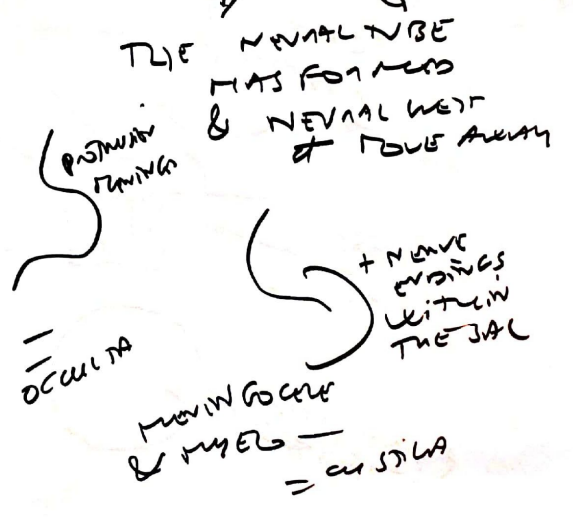 THE NEURAL TUBE
HAS FORMED
& NEURAL CREST
MOVE AWAY
PROTRUSION
MENINGES
+ NERVE
ENDINGS
WITHIN
THE SAC
=
OCCULTA
MENINGOCELE
& MYELO —
= CYSTICA